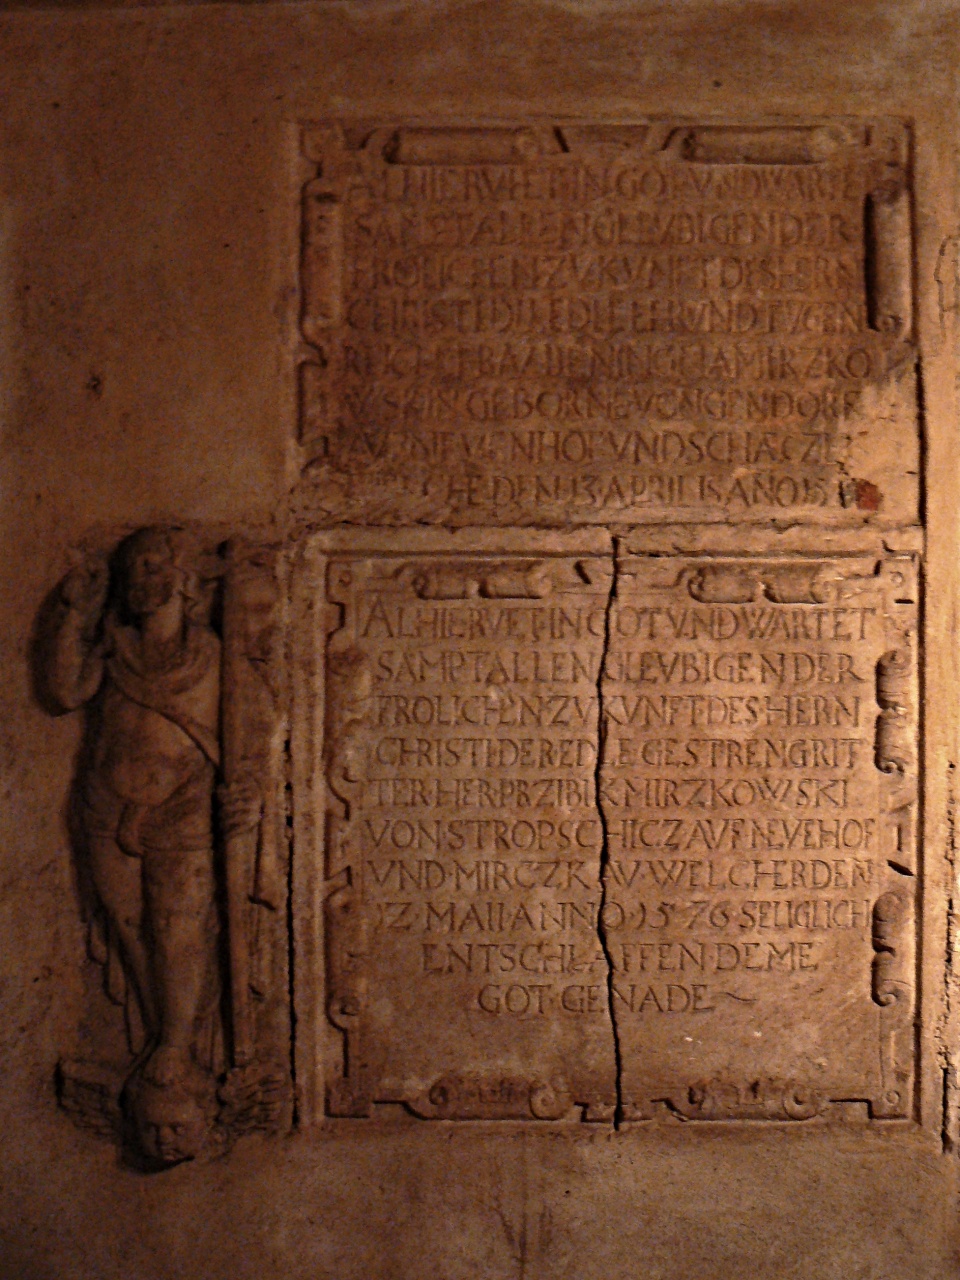 ALHIERVHET IN GOT VND WARTE
SAMPT ALLEN GLEVBIGEN DER
FROLICHEN ZVKVNFT DES HERN
CHRISTI DIE EDLE EHR VND TVGEN
REICHE FRAV HELENING GIAMIRZKO
WSKIN GEBORNE VON GENDORF
AVF NEVENHOF VND SCHACZ
DEN 13 APRILIS AÑO 15
ALHIE RVET IN GOT VND WARTET
SAMPT ALLEN GLEVBIGEN DER
FROLICHEN ZVKVNFT DES HERN
CHRISTI DER EDLE GESTRENG RIT
TER HER PRZIBIK MIRZKOWSKI
VON STROPSCHICZ AVF NEVEHOF
VND MIRCZKAV WELCHER DEN
Z MAII ANNO 1576 SELIGLICH
ENTSCHLAFFEN DEME
GOT GENADE